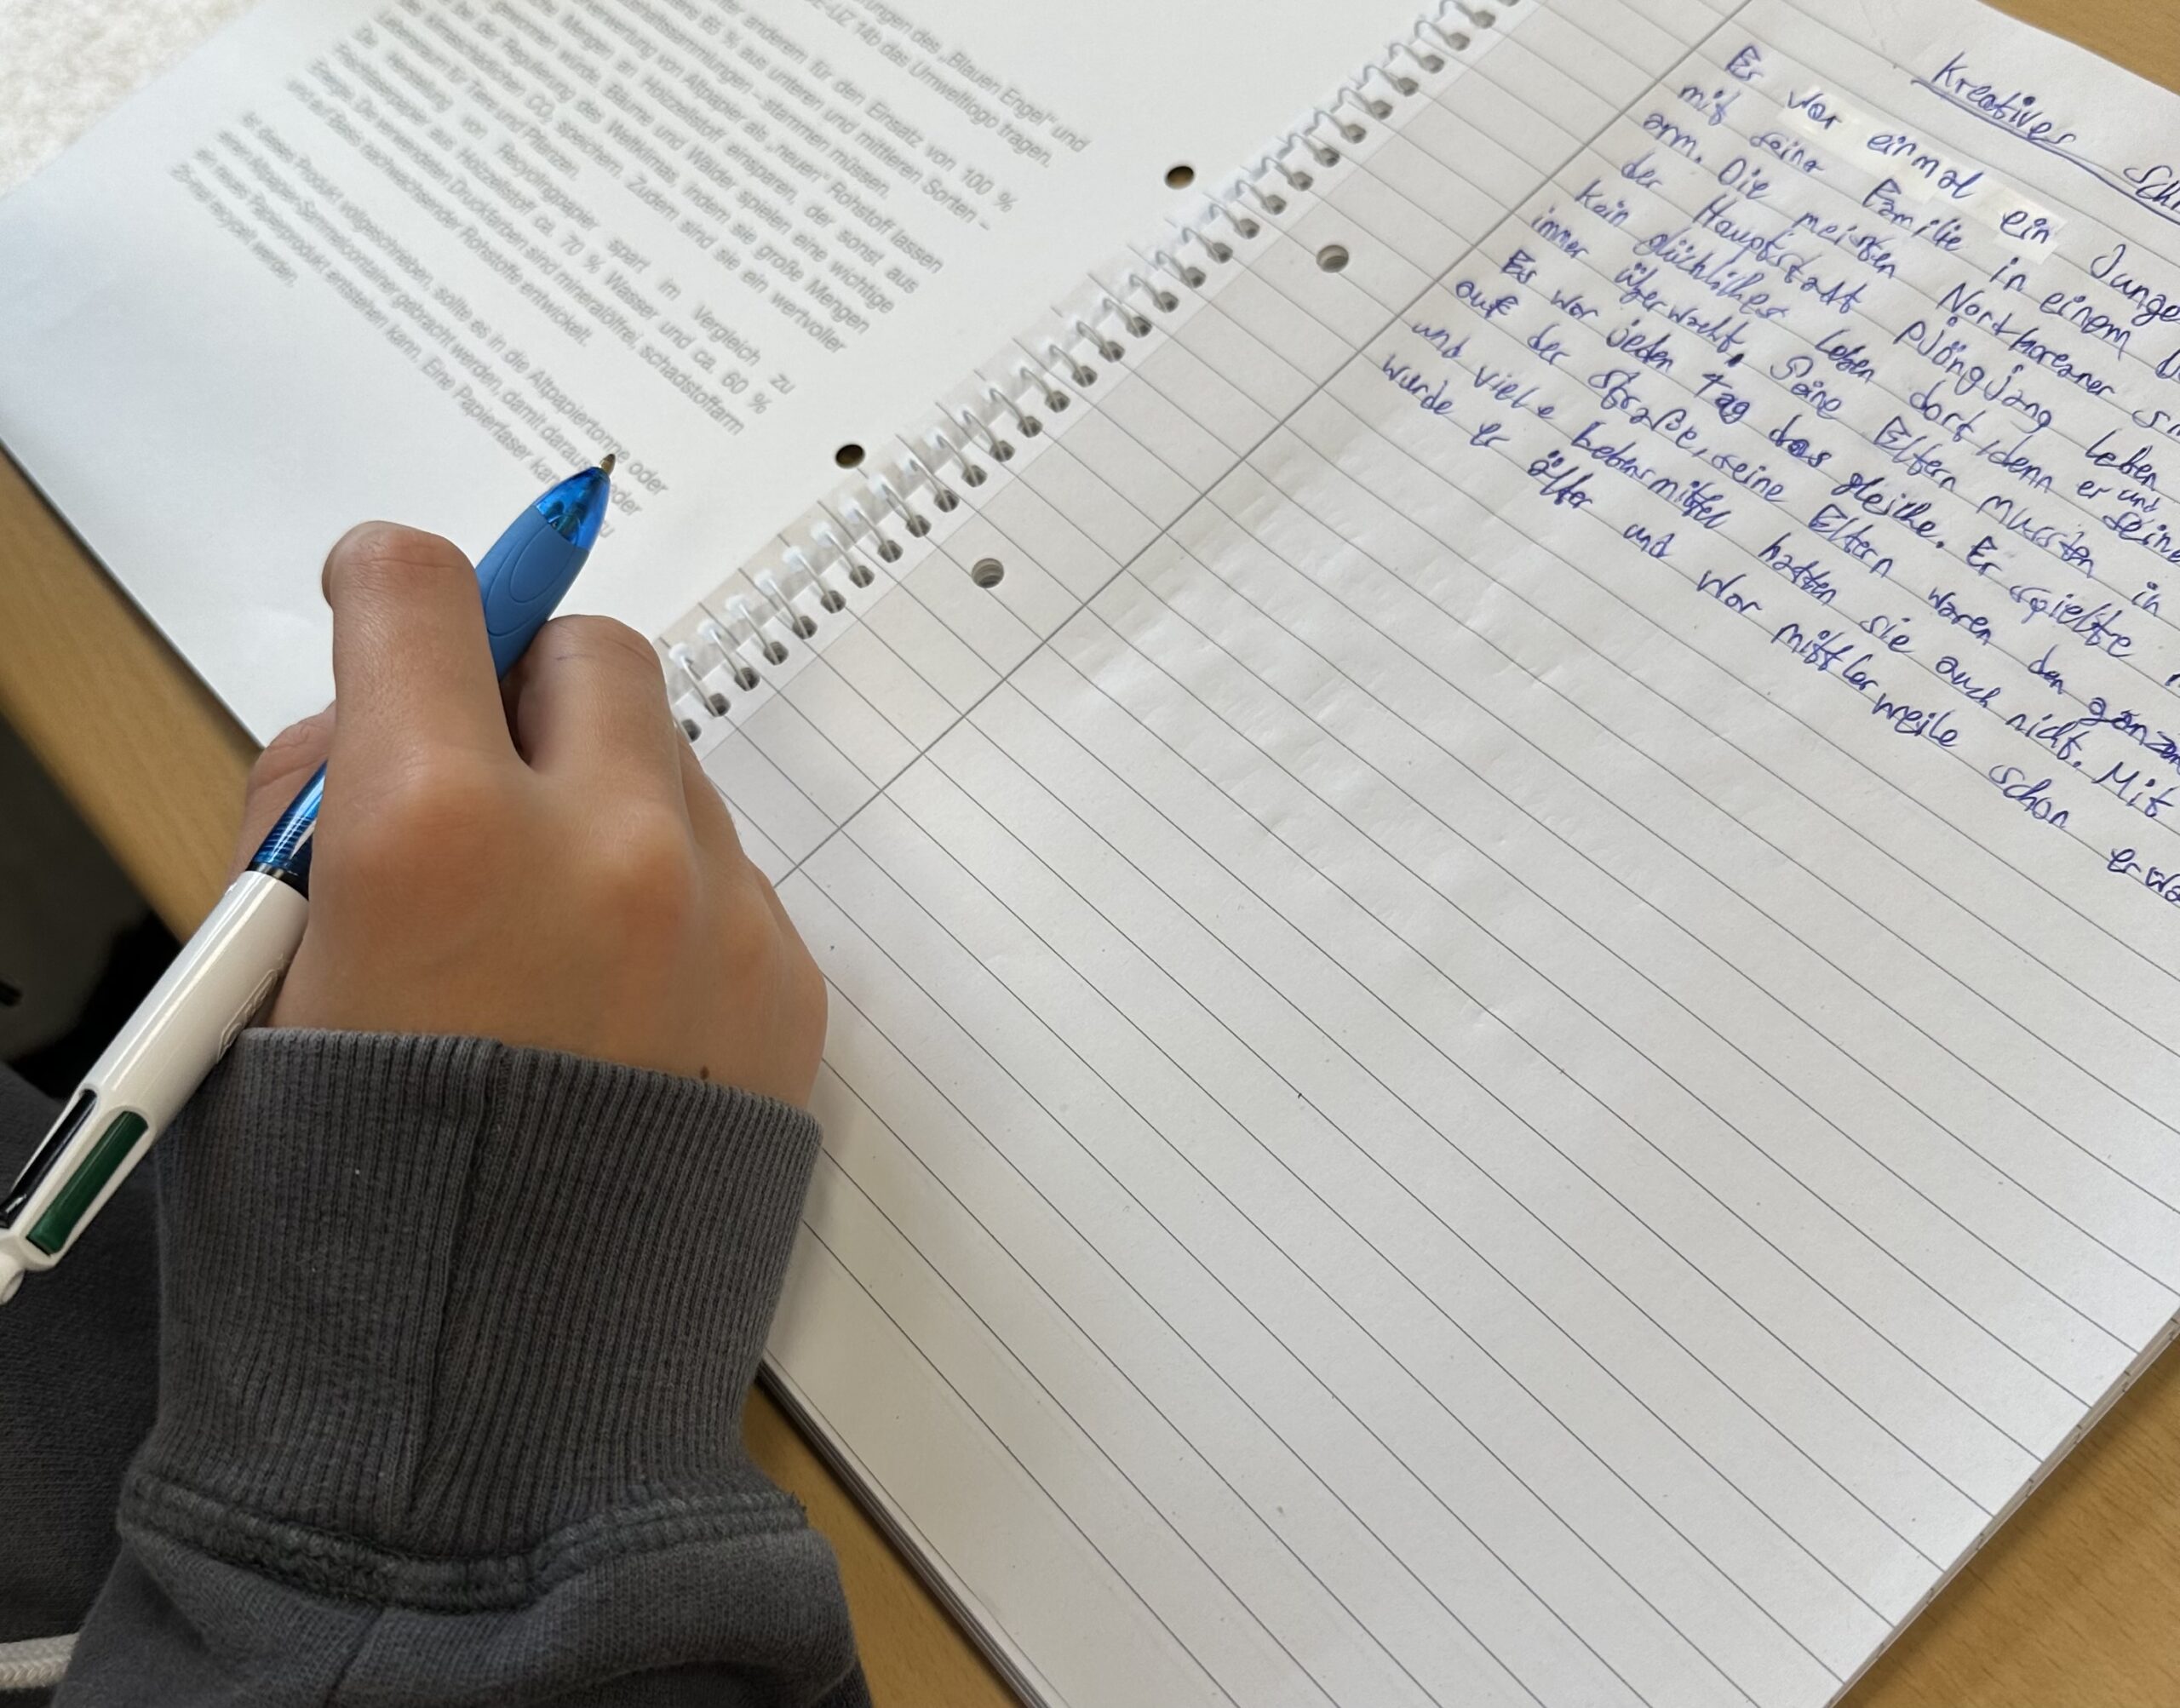 rungen des „Blauen Engel" und
-UZ 14b das Umweltlogo tragen.
anderem für den Einsatz von 100 %
aus unteren und mittleren Sorten –
stammen müssen.
von Altpapier als „neuen" Rohstoff lassen
Mengen an Holzzellstoff einsparen, der sonst aus
wurde. Bäume und Wälder spielen eine wichtige
der Regulierung des Weltklimas, indem sie große Mengen
CO₂ speichern. Zudem sind sie ein wertvoller
für Tiere und Pflanzen.
von Recyclingpapier spart im Vergleich zu
aus Holzzellstoff ca. 70 % Wasser und ca. 60 %
Die verwendeten Druckfarben sind mineralölfrei, schadstoffarm
und auf Basis nachwachsender Rohstoffe entwickelt.
Ist dieses Produkt vollgeschrieben, sollte es in die Altpapiertonne oder
gebracht werden, damit daraus
neues Papierprodukt entstehen kann. Eine Papierfaser kann
recycelt werden.
Kreatives Sch
Es war einmal ein Junge
mit seiner Familie in einem
arm. Die meisten Nortkoreaner
der Hauptstatt Pjöngjang leben
kein glückliches leben dort, denn er und seine
immer überwacht. Seine Eltern mussten in
Es war jeden Tag das gleiche. Er spielte
auf der Straße, seine Eltern waren den ganzen
und viele lebensmittel hatten sie auch nicht. Mit
wurde er älter und war mittlerweile schon erwa